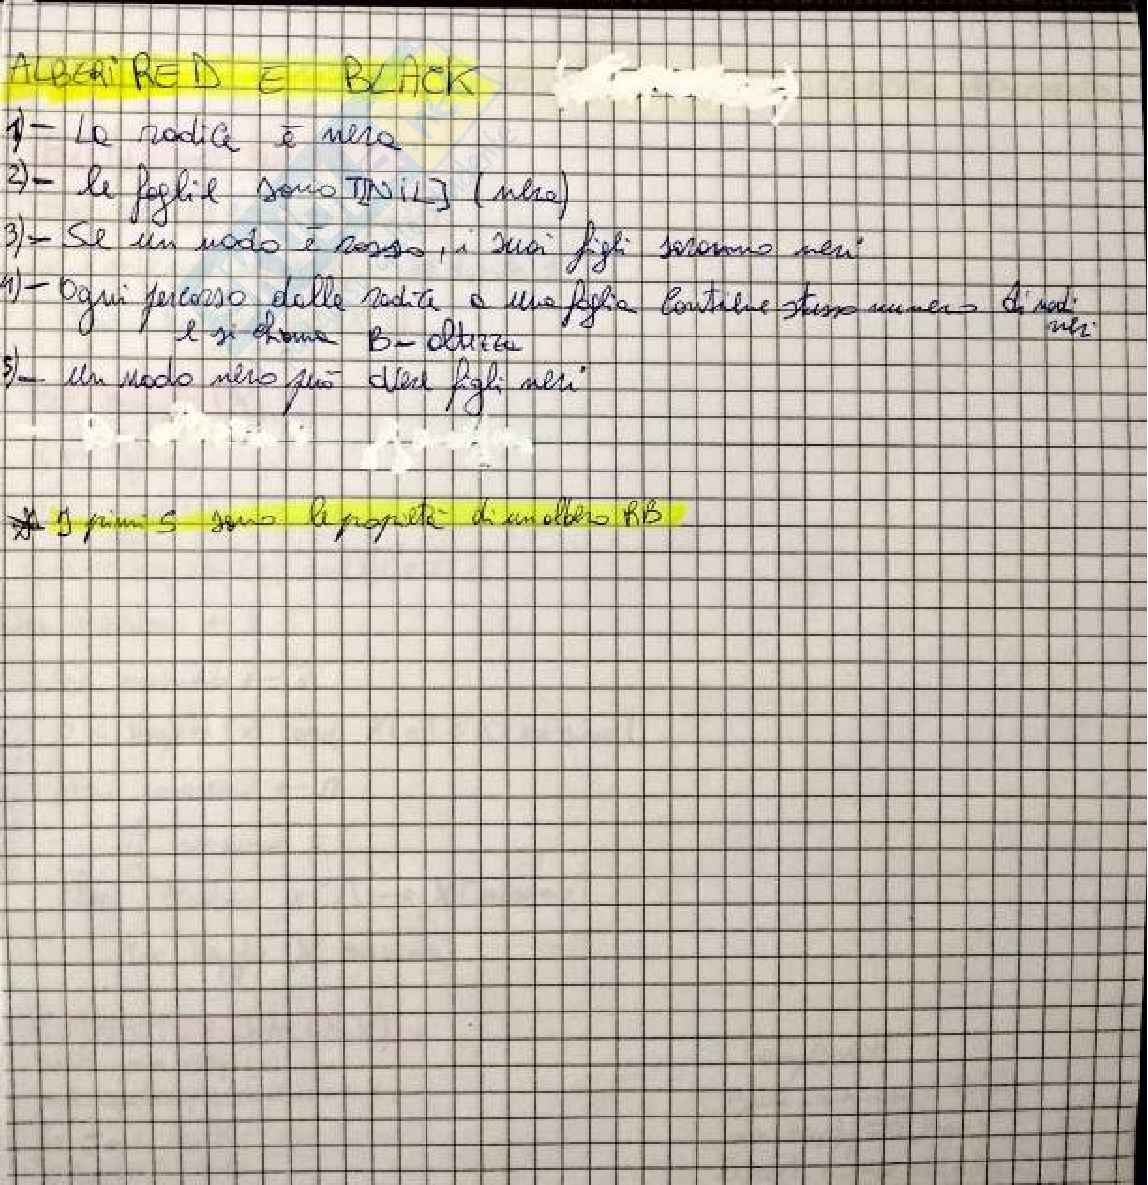 ALBERI RED E BLACK
1)- La radice è nera
2)- le foglie sono T[NIL] (nera)
3)- Se un nodo è rosso, i suoi figli saranno neri
4)- Ogni percorso dalla radice a una foglia contiene stesso numero di nodi neri
e si chiama B-altezza
5)- un nodo nero può avere figli neri
* I primi 5 sono le propietà di un albero RB